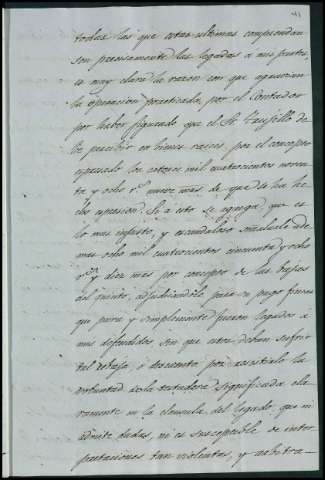 41
todas las que estas ultimas comprendan
son precisamente las legadas á mis partes,
es muy clara la razon con que aguaran
la operacion practicada, por el Contador
por haber figurado que el Sr. Trujillo de-
be percibir en bienes raices, por el concepto
espresado los catorce mil cuatrocientos noven-
ta y ocho rs. nueve mas. de que se ha he-
cho espresion. Si a esto se agrega, que es
lo mas injusto, y escandaloso señalarle ade-
mas ocho mil cuatrocientos cincuenta y ocho
rs. y diez mas por concepto de las bajas
del quinto, adjudicandolo, para su pago fincas
que pura y simplemente fueron legadas á
mis defendidos sin que estos deban sufrir
tal rebaja, ó descuento por resistirlo la
voluntad de la testadora significada cla-
ramente en la clausula del legado, que ni
admite dudas, ni es susceptible de inter-
pretaciones tan violentas, y arbitra-